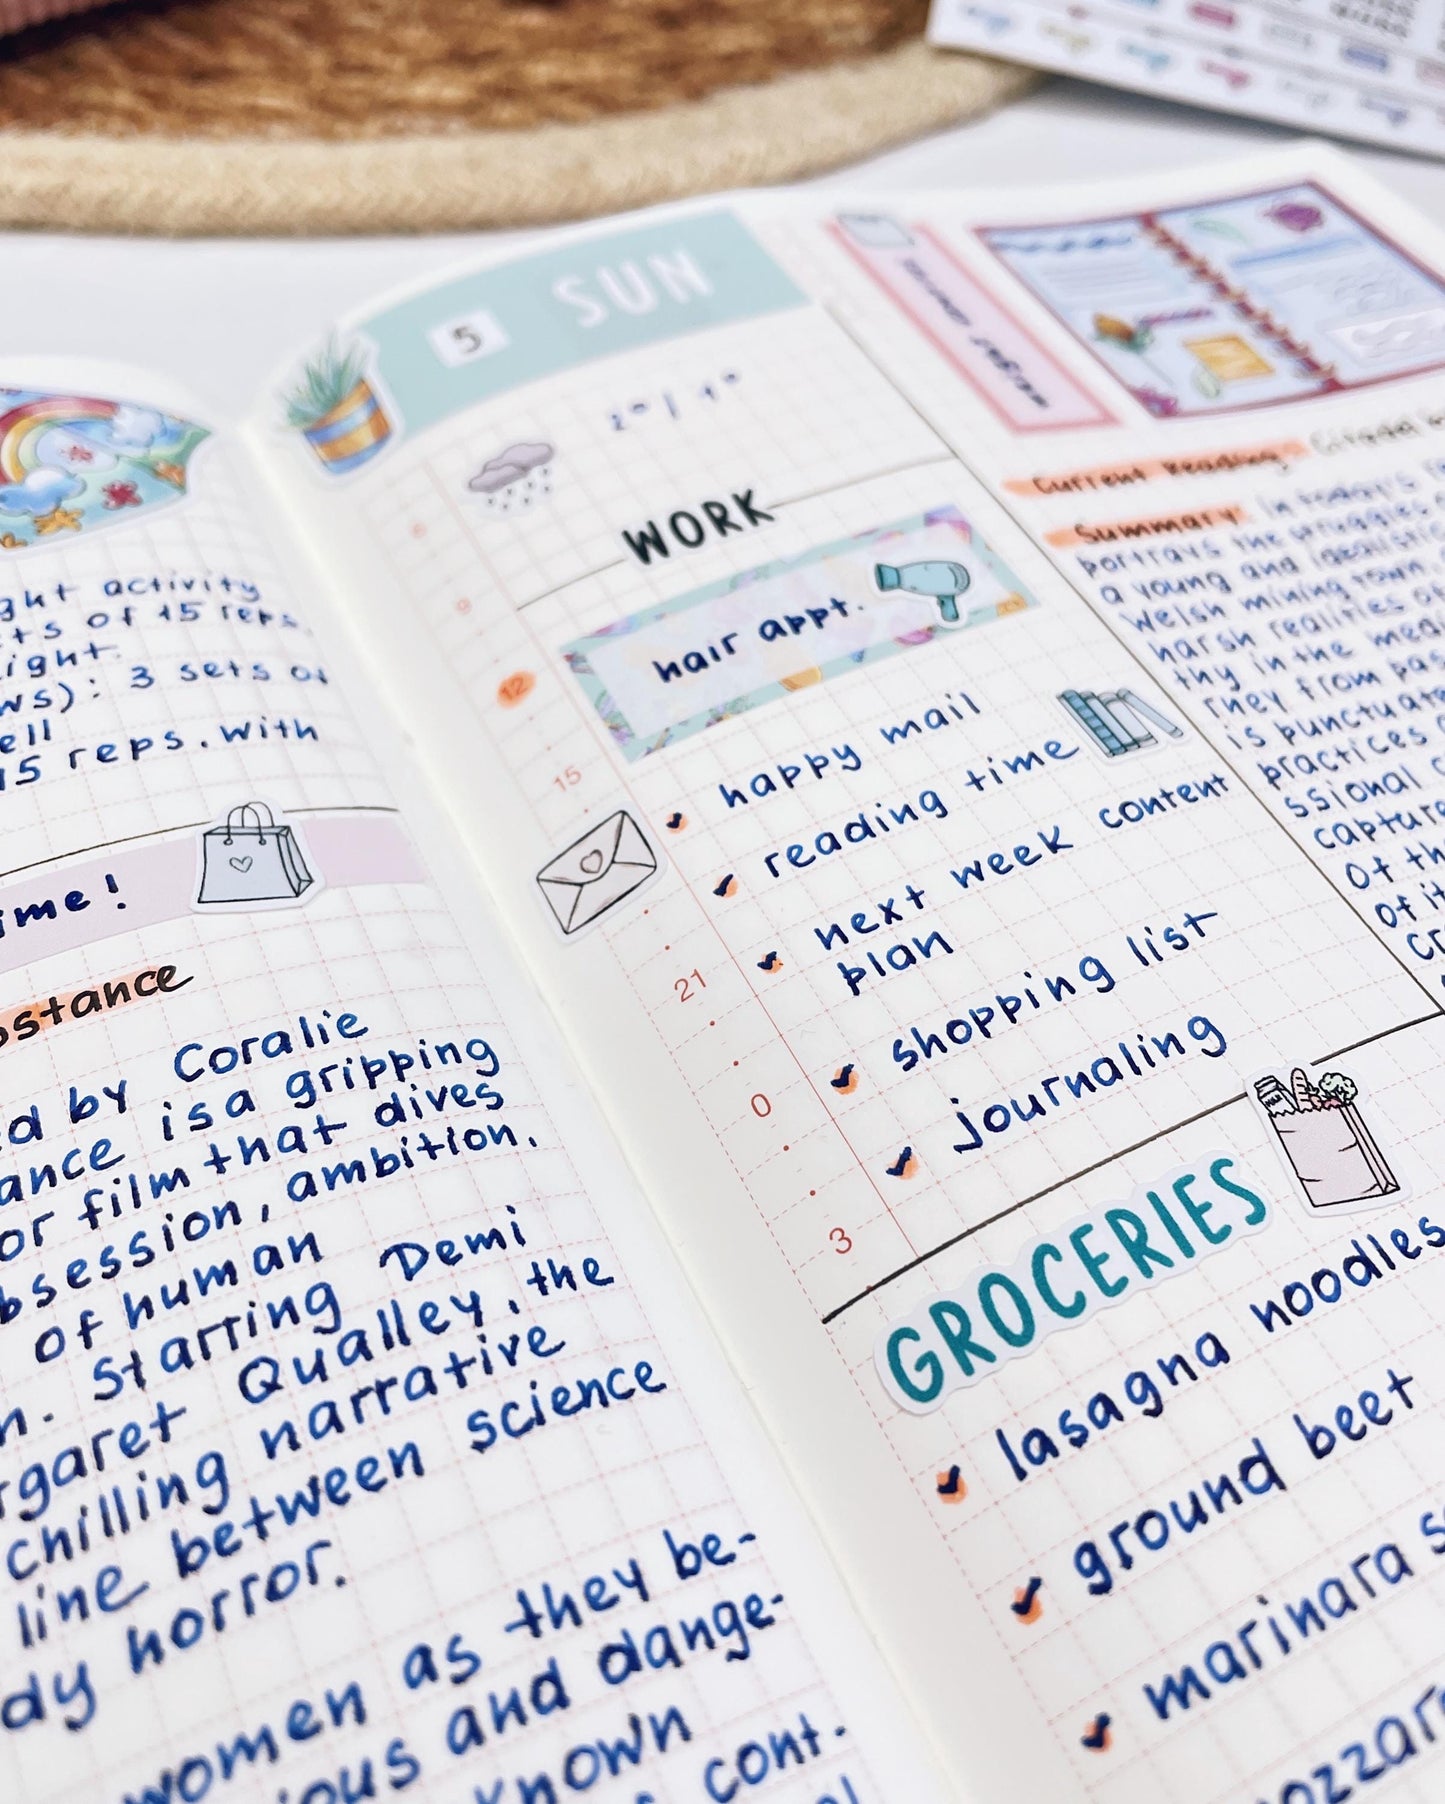 ght activity
ts of 15 reps.
ight.
ws): 3 sets of
ell
15 reps. with
ime!
bstance
ed by Coralie
ance is a gripping
or film that dives
bsession, ambition,
of human
n. Starring Demi
rgaret Qualley, the
chilling narrative
line between science
dy horror.
women as they be-
ious and dange-
known
cont.
5 SUN
WORK
hair appt.
happy mail
reading time
next week content
plan
shopping list
journaling
6
9
12
15
21
0
3
GROCERIES
lasagna noodles
ground beet
marinara s
ozzar
Current Reading: Citadel
Summary: In today's
portrays the struggles
a young and idealistic
Welsh mining town.
harsh realities o
thy in the med
rney from pas
is punctuat
practices
ssional c
capture
of th
of it
cr